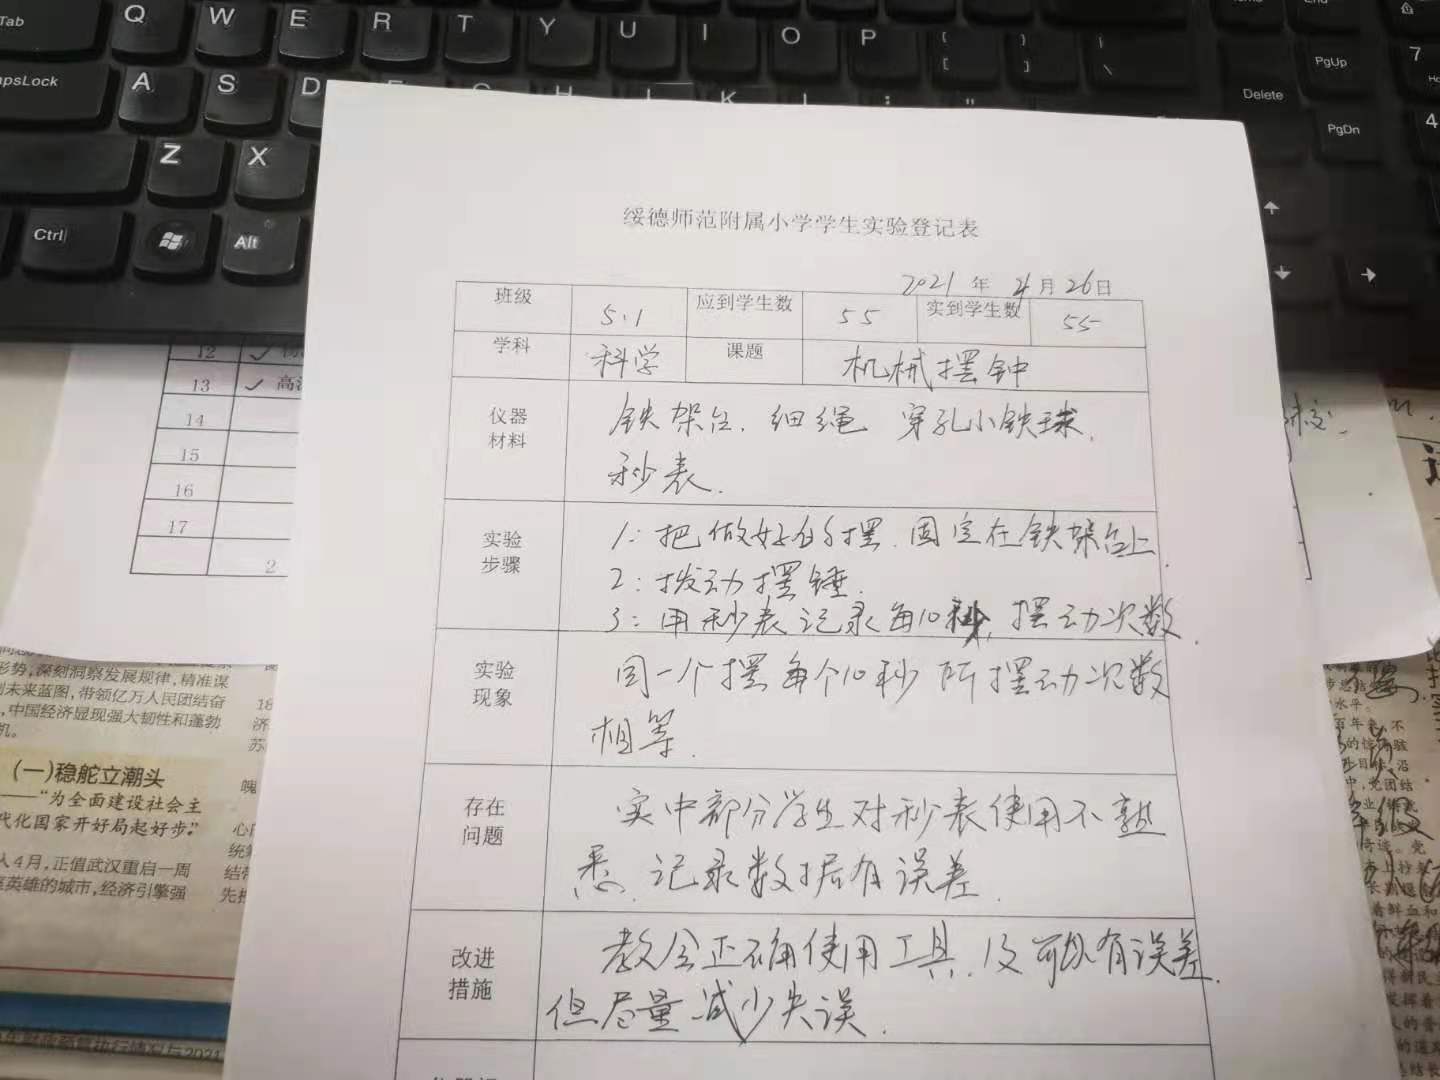 Tab
Q W E R T Y U I O P
PgUp
7
CapsLock
A S D
Delete
PgDn
4
Z X
Ctrl
Alt
绥德师范附属小学学生实验登记表
2021 年 4 月 26 日
班级 5.1 应到学生数 55 实到学生数 55
学科 科学 课题 机械摆钟
仪器材料 铁架台、细绳 穿孔小铁球、
秒表.
实验步骤 1: 把做好的摆.固定在铁架台上.
2: 拨动摆锤.
3: 用秒表记录每10秒,摆动次数.
实验现象 同一个摆每个10秒 所摆动次数
相等.
存在问题 实中部分学生对秒表使用不熟
悉、记录数据有误差.
改进措施 教会正确使用工具.
但尽量减少失误.
12
13
14
15
16
17
2
形势,深刻洞察发展规律,精准谋
未来蓝图,带领亿万人民团结奋
,中国经济显现强大韧性和蓬勃
机。
(一)稳舵立潮头
——“为全面建设社会主
代化国家开好局起好步”
4月,正值武汉重启一周
英雄的城市,经济引擎强